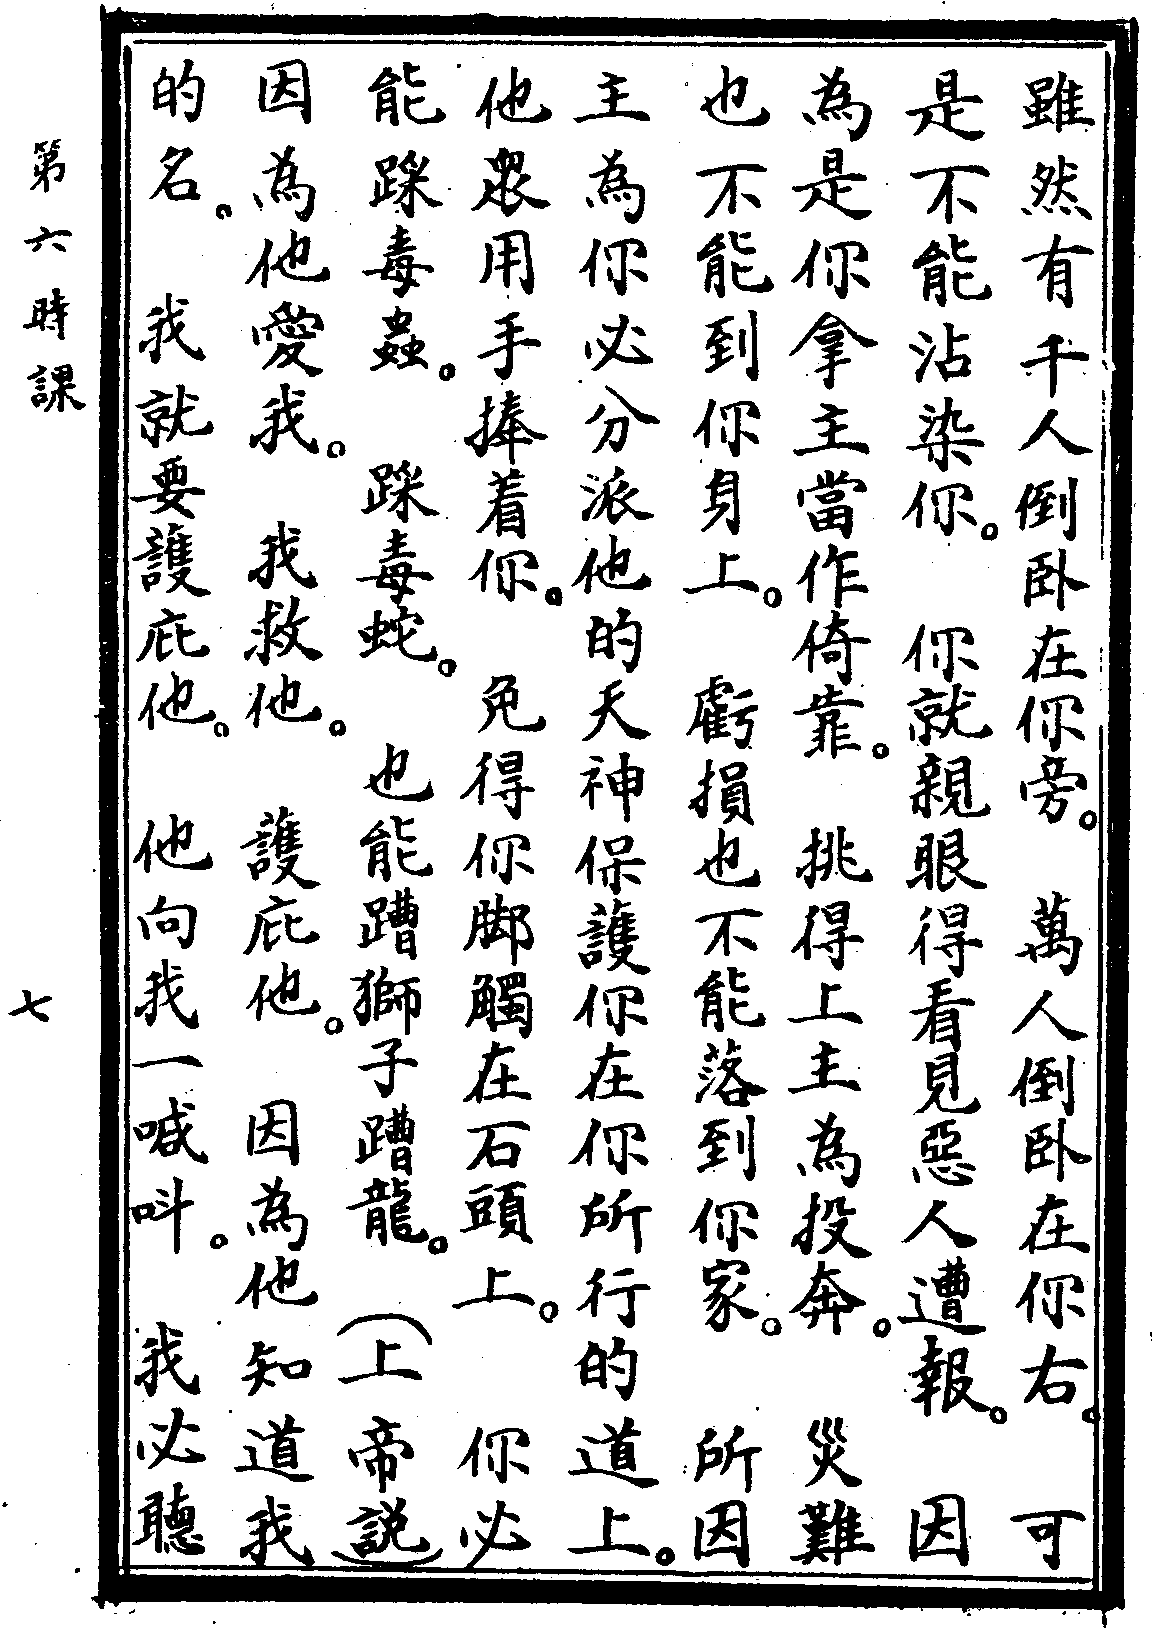 雖然有千人倒卧在你旁。萬人倒卧在你右。可
是不能沾染你。你就親眼得看見惡人遭報。因
為是你拿主當作倚靠。挑得上主為投奔。災難
也不能到你身上。虧損也不能落到你家。所因
主為你必分派他的天神保護你在你所行的道上。
他衆用手捧着你。免得你脚觸在石頭上。你必
能踩毒蟲。踩毒蛇。也能蹧獅子蹧龍。(上帝説)
因為他愛我。我救他。護庇他。因為他知道我
的名。我就要護庇他。他向我一喊呌。我必聽
第六時課
七